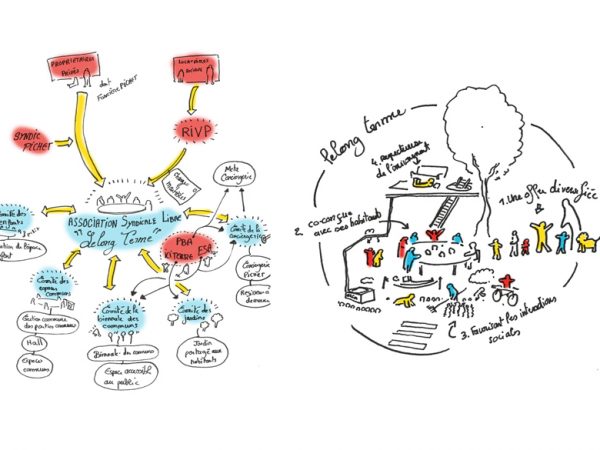 PROPRIÉTAIRES
PRIVÉS
dont
Foncière PICHET
LOCATAIRES
SOCIAUX
SYNDIC
PICHET
RIVP
Meta
Conciergerie
ASSOCIATION SYNDICALE LIBRE
"Le long terme"
PBA
VITORRE ESA
Comité de la
conciergerie
Conciergerie
PICHET
Comité des
espaces
communs
Gestion commune
des parties communes
Hall
Espaces
communs
Comité de la
biennale des
communs
Biennale des communs
Espace accessible
au public
Comité des
jardins
Jardin
partagé aux
habitants
Le long terme
4. respectueuse
de l'environnement
1. Une offre diversifiée
2. co-conçue
avec ses habitants
3. Favorisant les interactions
sociales